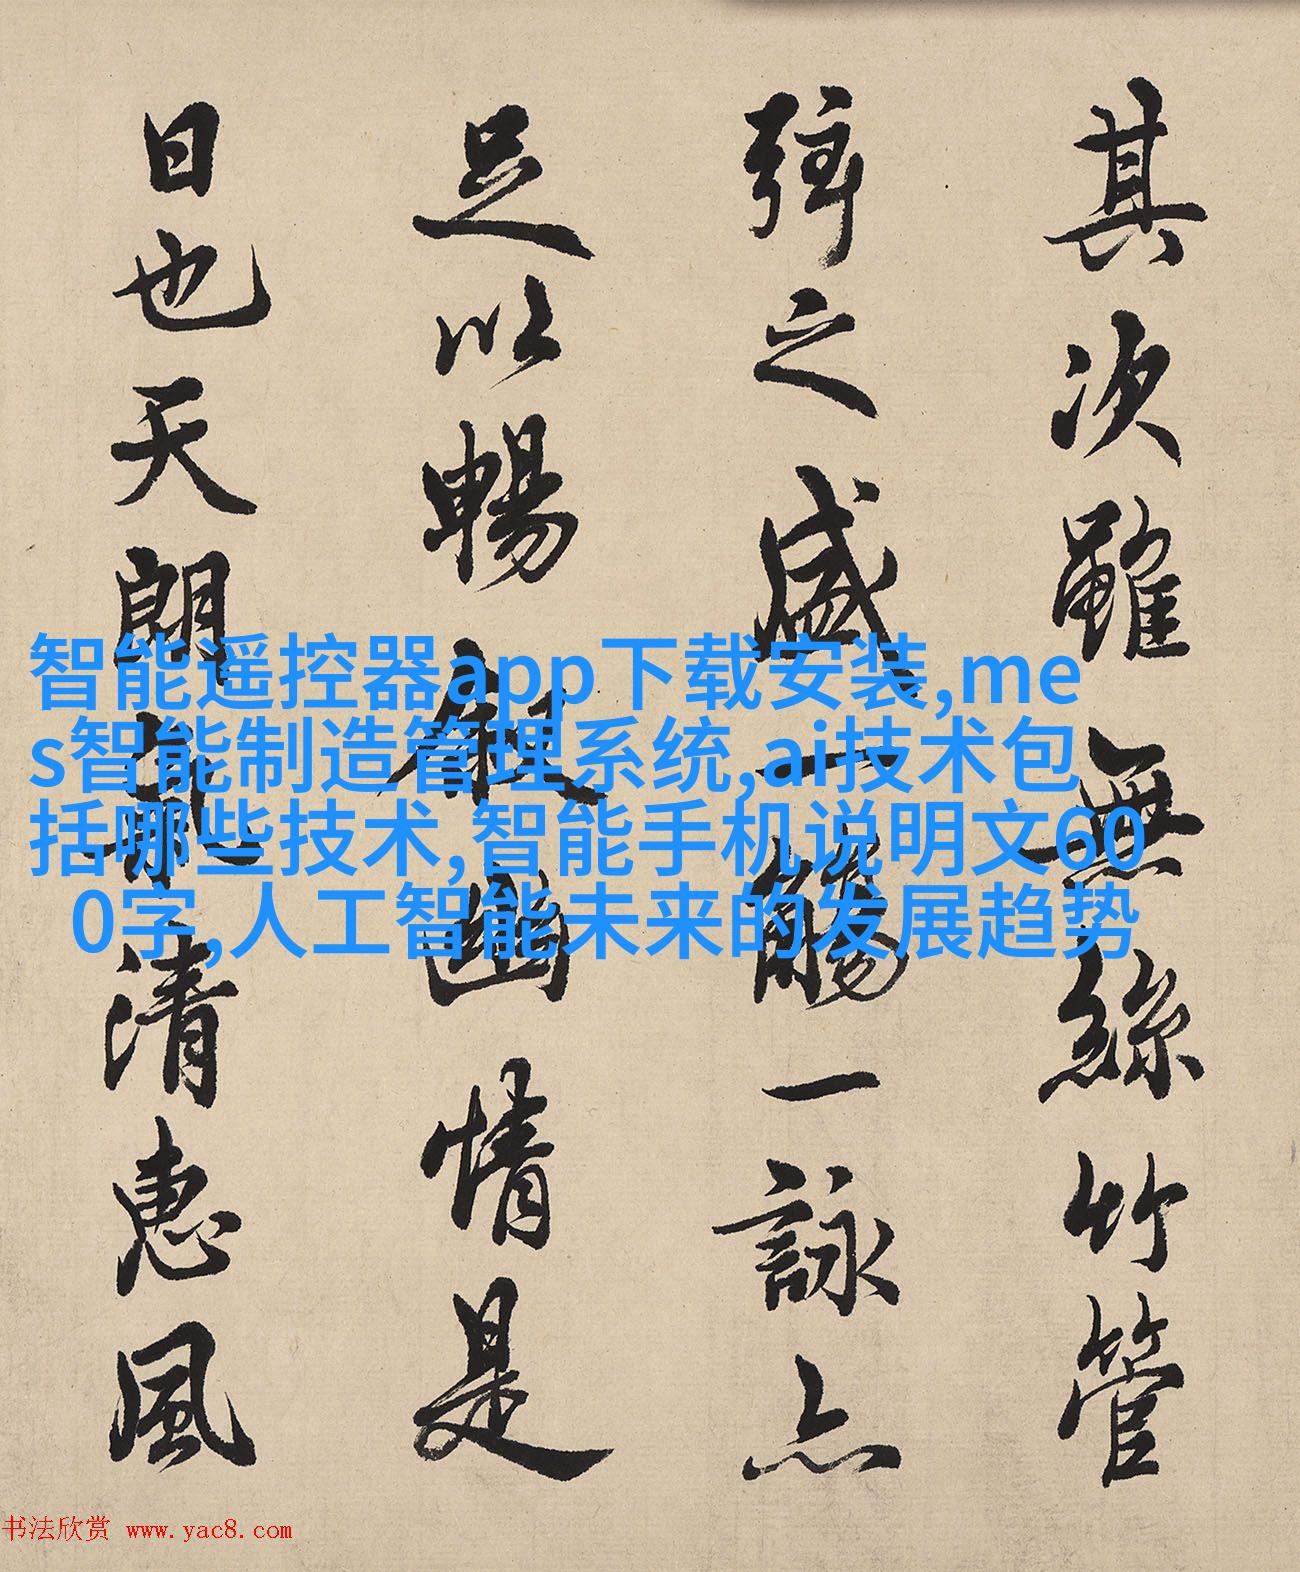 其次雖無絲竹管
弦之盛一觴一詠亦
足以暢叙幽情是
日也天朗氣清惠風
智能遥控器app下载安装,me
s智能制造管理系统,ai技术包
括哪些技术,智能手机说明文60
0字,人工智能未来的发展趋势
书法欣赏 www.yac8.com